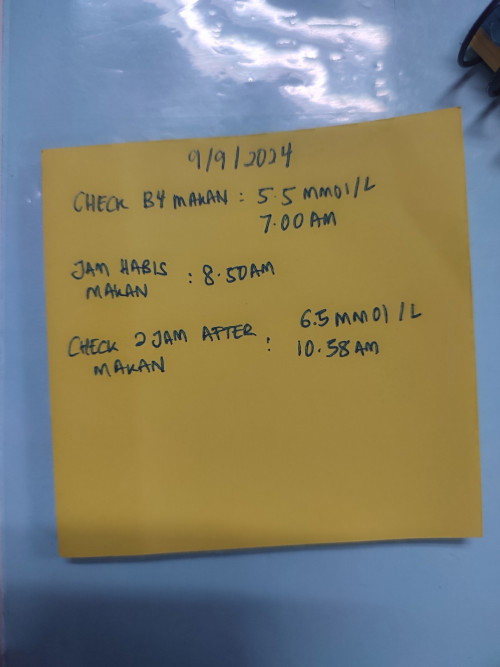 9/9/2024
CHECK B4 MAKAN : 5.5 MMOl/L
7.00 AM
JAM HABIS
MAKAN : 8.50AM
CHECK 2 JAM AFTER : 6.5 MMOl/L
MAKAN 10.58 AM